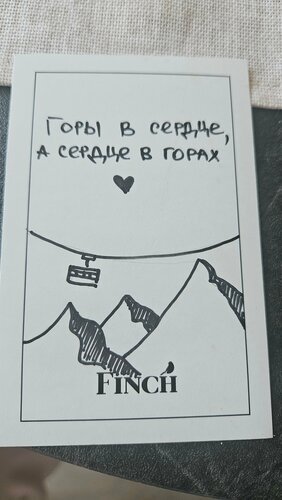 Горы в сердце,
а сердце в горах
FINCH